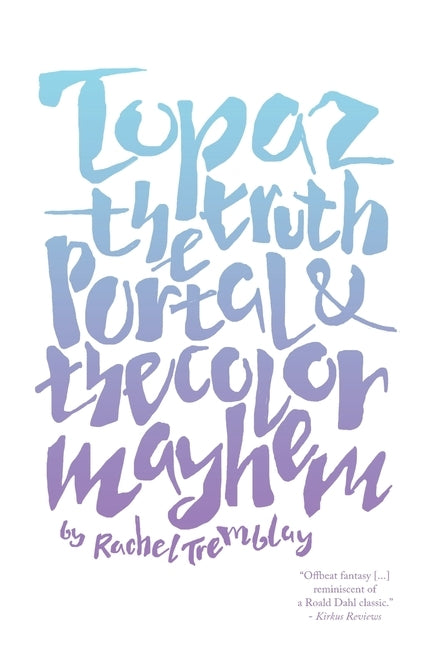 Topaz
the truth
the
Portal &
the color
mayhem
by Rachel Tremblay
“Offbeat fantasy [...]
reminiscent of
a Roald Dahl classic.”
- Kirkus Reviews